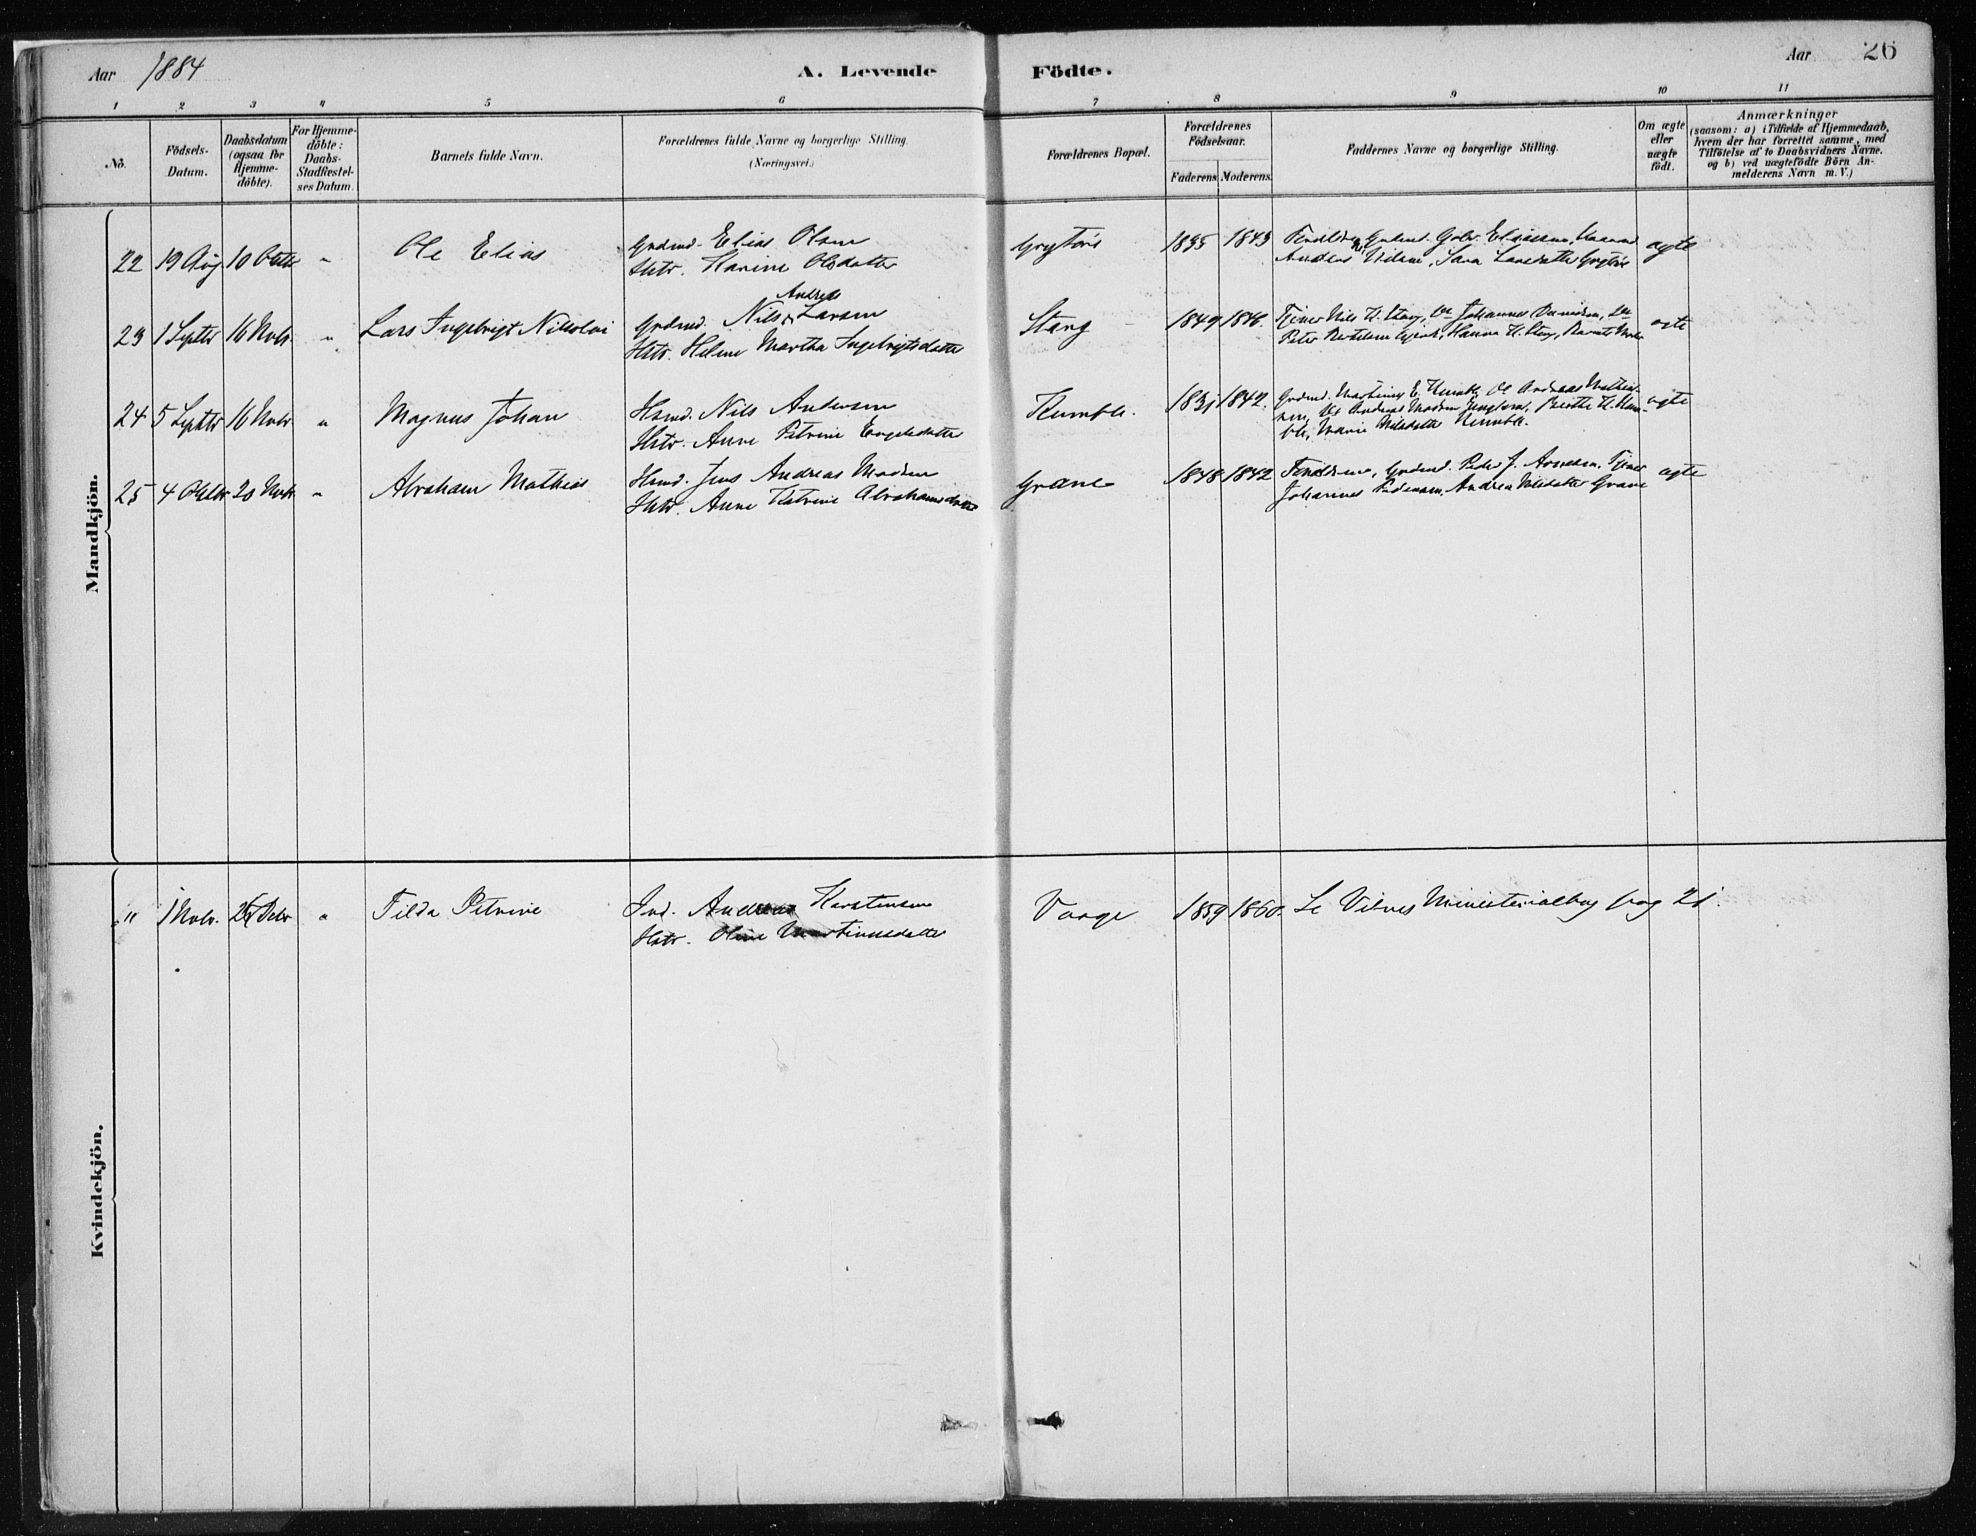 Aar 1884
A. Levende
Födte.
Aar 26
1 2 3 4 5 6 7 8 9 10 11
No.
Födsels-
Datum.
Daabsdatum
(ogsaa for
Hjemme-
döbte).
For Hjemme-
döbte:
Daabs-
Stadfæstel-
ses Datum.
Barnets fulde Navn.
Forældrenes fulde Navne og borgerlige Stilling.
(Næringsvei.)
Forældrenes Bopæl.
Forældrenes
Födselsaar.
Faderens Moderens.
Faddernes Navne og borgerlige Stilling.
Om ægte
eller
uægte
födt.
Anmærkninger
(saasom: a) i Tilfælde af Hjemmedaab,
hvem der har forrettet samme, med
Tilföielse af to Daabsvidners Navne,
og b) ved uægtefödte Börn An-
melderens Navn m. V.)
Mandkjön.
22 19 Aug 10 Oktbr " Ole Elias
Grdmd. Elias Olsen
Hstr. Karine Olsdatter
Grytøis 1835 1843
Forældre, Grdmd.
Anders Nilsen, Sara Larsdatter Grytøis
ægte
23 1 Septbr 16 Novbr " Lars Ingebrigt Nikolai
Andreas
Grdmd. Nils Larsen
Hstr. Helene Martha Ingebrigtsdatter
Stang 1849 1846.
Tjener Nils H. Stang, Do Johannes Do
Peter Hanna H. Stang, Barnets Moder
ægte
24 5 Septbr 16 Novbr " Magnus Johan
Hsmd. Nils Andersen
Hstr. Anne Petrine Engelsdatter
Humble. 1831 1842.
Grdmd. Martinus E. Humble, Do Andreas Mathias-
sen, Do Andreas Madsen Berthe H. Hum-
ble, Marie Nilsdatter Humble.
ægte
25 4 Oktbr 20 Novbr " Abraham Mathias
Hsmd. Jens Andreas Madsen
Hstr. Anne Katrine Abrahamsdatter
Grane 1848 1842
Forældrene, Grdmd. Peder J. Tjener
Johannes Pedersen, Andrea Nilsdatter Grane
ægte
Kvindekjön.
" 1 Novbr. 26 Decbr " Tilda Petrine
Ind. Andreas Karstensen
Hstr. Oline Martinusdatter
Vaage 1859 1860. Se Vilnes Ministerialbog pag 21.